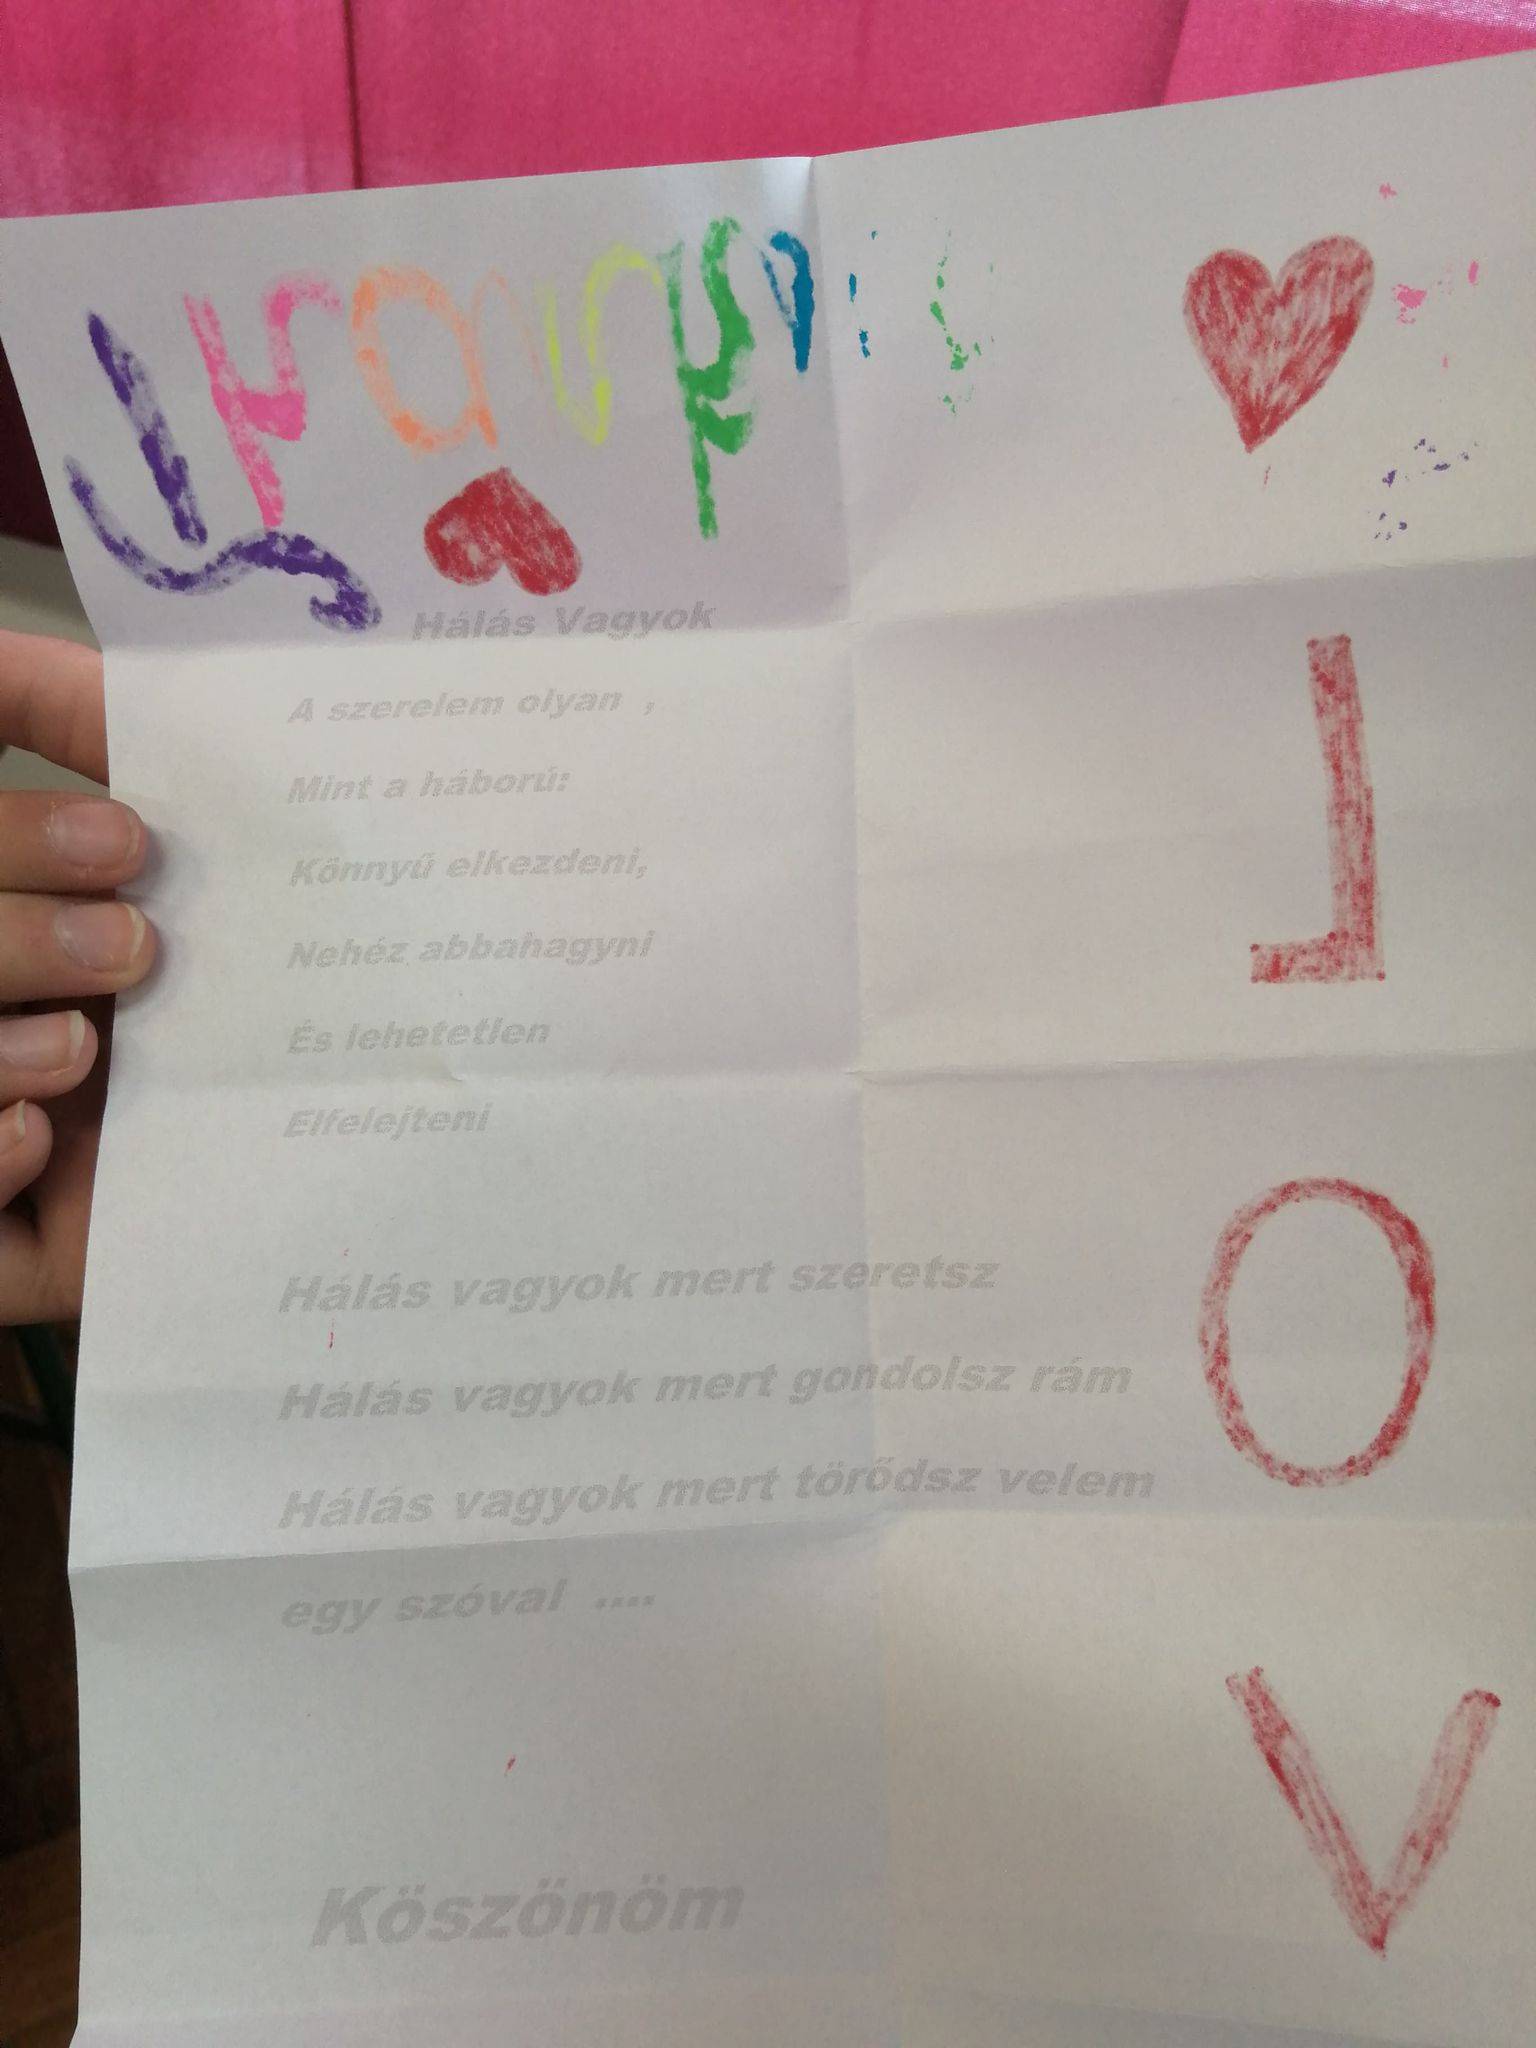 Hálás Vagyok
A szerelem olyan ,
Mint a háború:
Könnyű elkezdeni,
Nehéz abbahagyni
És lehetetlen
Elfelejteni
Hálás vagyok mert szeretsz
Hálás vagyok mert gondolsz rám
Hálás vagyok mert törődsz velem
egy szóval ....
Köszönöm
L
O
V